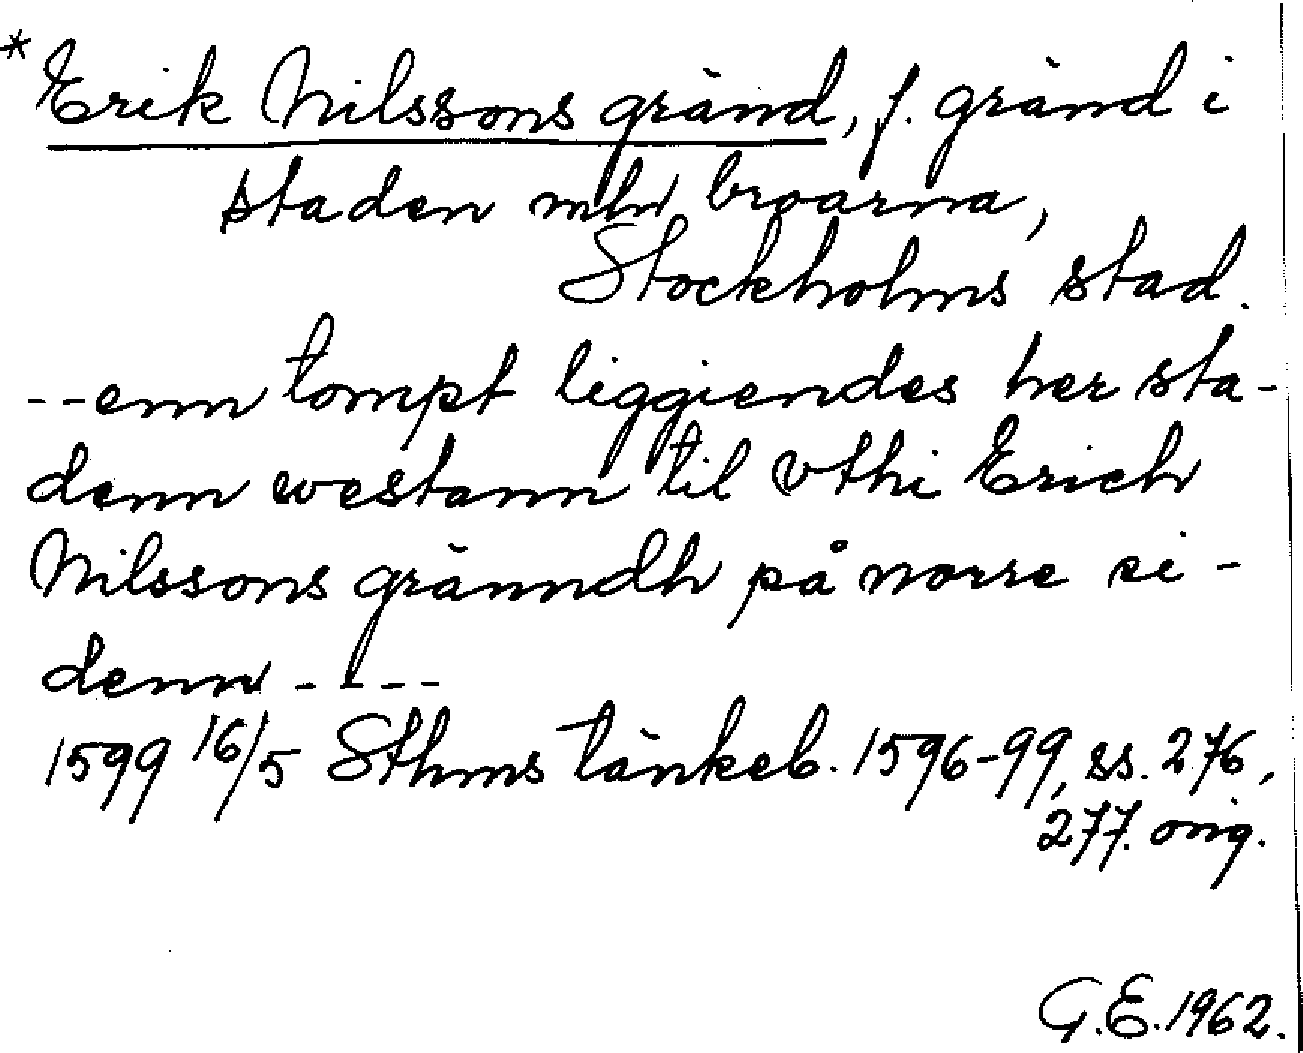 * Erik Nilssons gränd, f. gränd i
staden mln broarna,
Stockholms stad.
--enn tompt liggiendes her sta-
denn westann til vthi Erich
Nilssons gränndh på norre si-
denn ----
1599 16/5 Sthms tänkeb. 1596-99, ss. 276,
277. orig.
G.E. 1962.